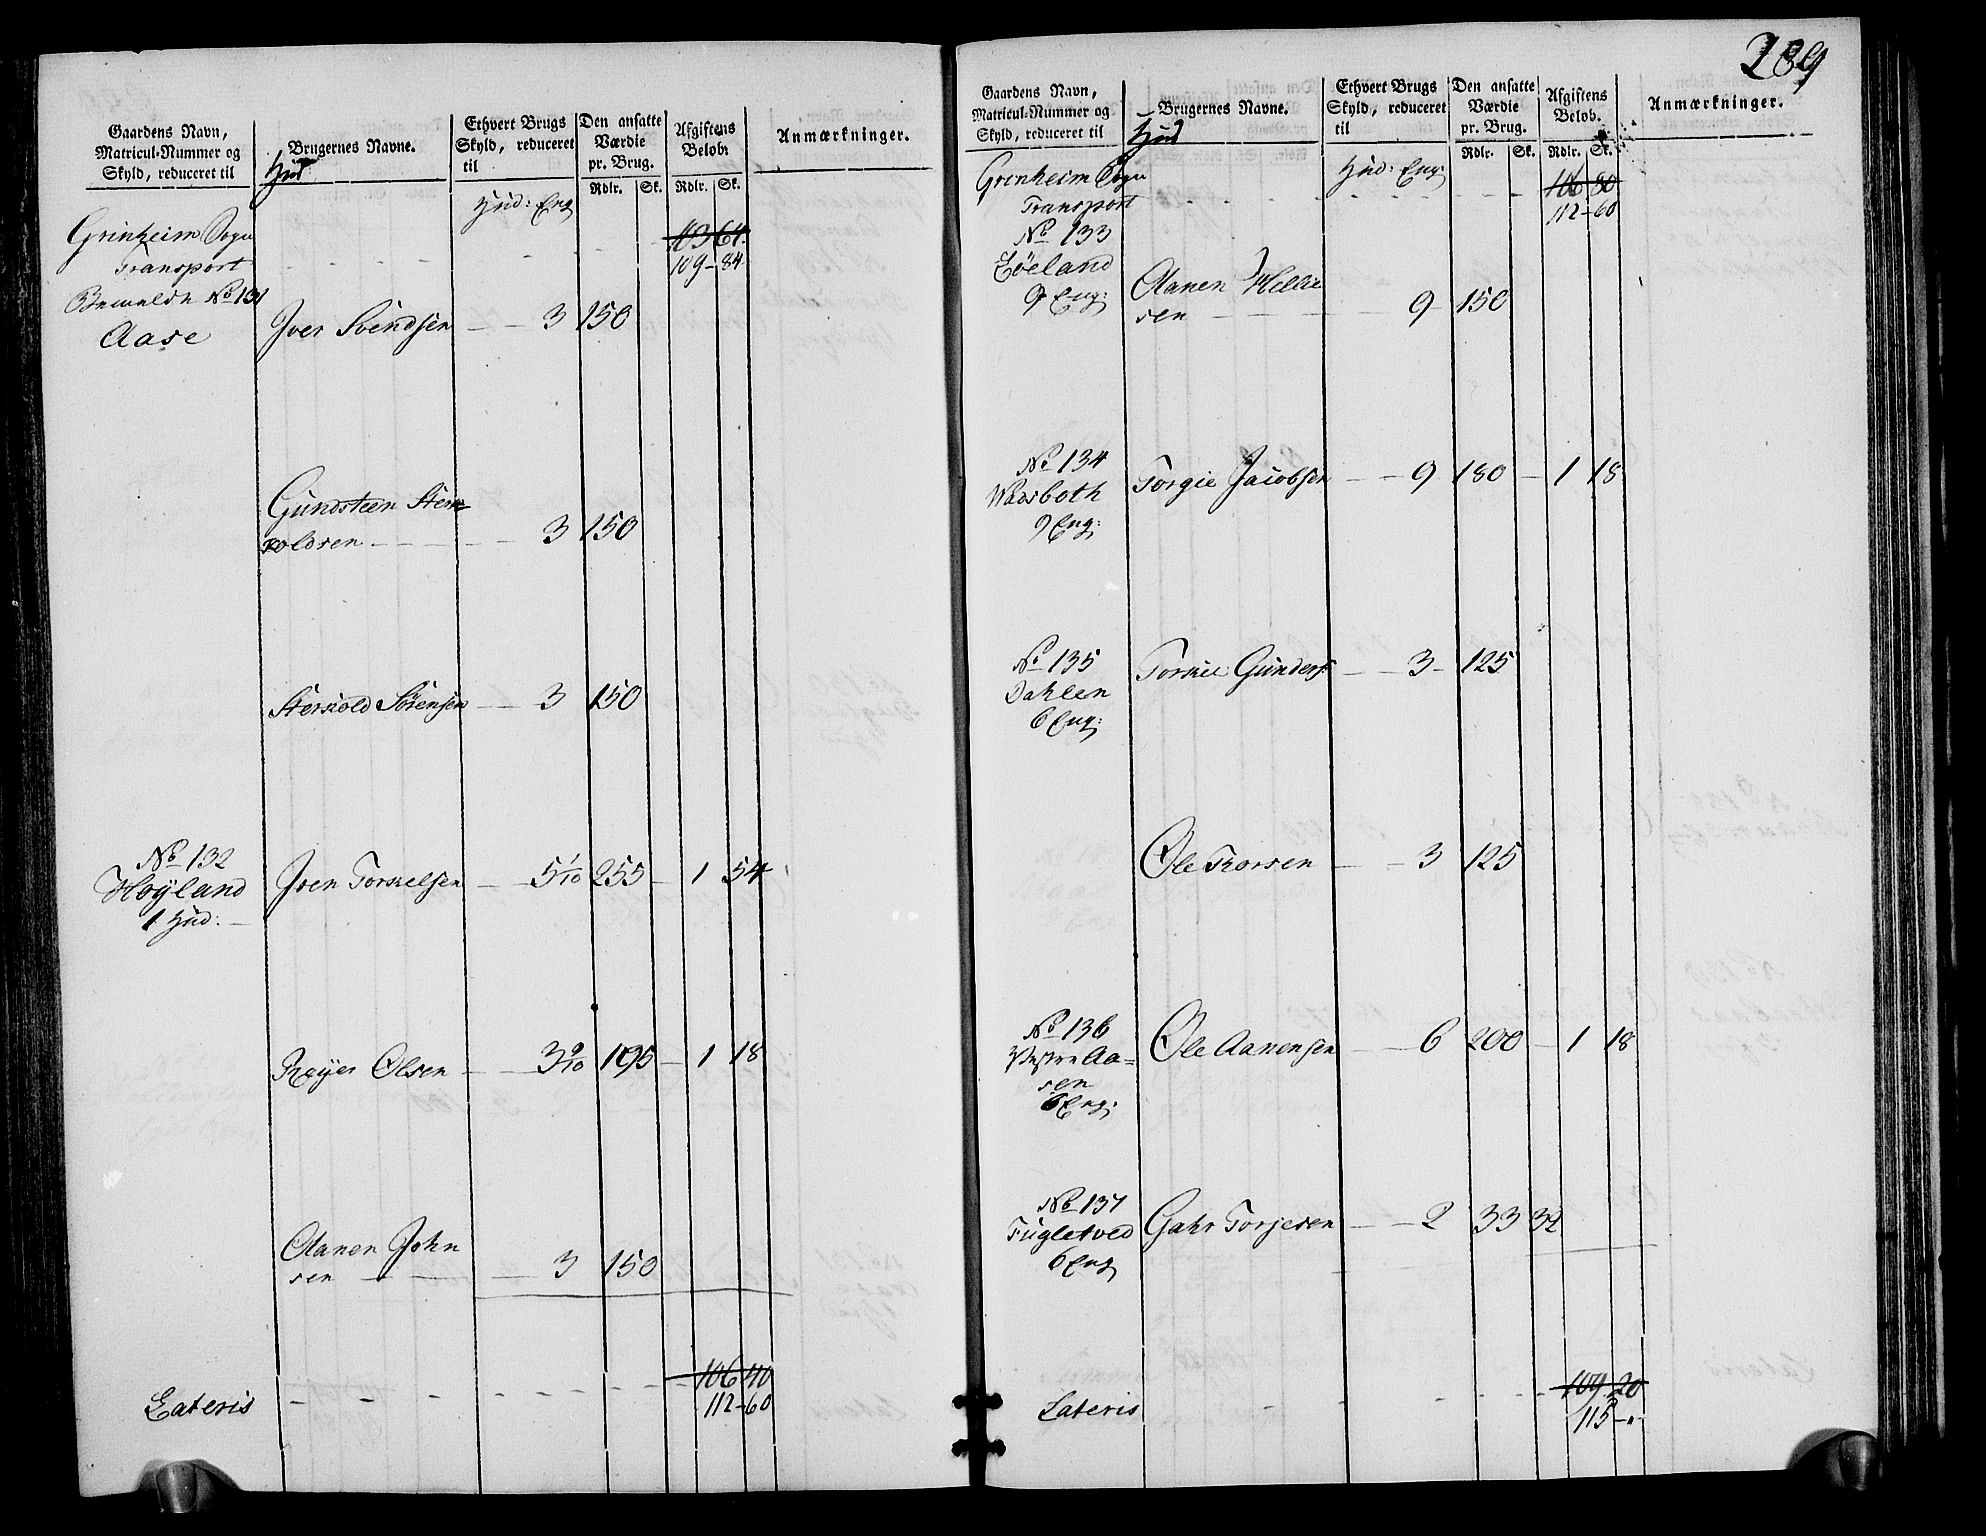 Gaardens Navn, Matricul-Nummer og Skyld, reduceret til | Brugernes Navne. | Ethvert Brugs Skyld, reduceret til | Den ansatte Værdie pr. Brug. | Afgiftens Beløb. | Anmærkninger.
Hud: Eng | Rdlr. | Sk. | Rdlr. | Sk.
Grinheim Sogn
Transport - - - - - 103 64
109 - 84
No 131
Aase Iver Svendsen - - 3 150
Gundsteen Sters
koldsen - - - 3 150
Sterkold Sörensen - - 3 150
No 132
Höyland Iver Torkelsen - 5 1/10 255 - 1 54
1 Hud: -
Reyer Olsen - - 3 9/10 195 - 1 18
Aanen John
sen - - - 3 150
106 40
Lateris - - - - - 112 - 60
289
Gaardens Navn, Matricul-Nummer og Skyld, reduceret til | Brugernes Navne. | Ethvert Brugs Skyld, reduceret til | Den ansatte Værdie pr. Brug. | Afgiftens Beløb. | Anmærkninger.
Hud: Eng: | Rdlr. | Sk. | Rdlr. | Sk.
Grinheim Sogn - - - 106 80
Transport - - - 112 - 60
No 133
Löeland Aanen Helle
9 Eng: sen - - - 9 - 150
No 134
Torgie Jacobsen - - 9 180 - 1 18
9 Eng:
No 135 Torkel Gunders: - - 3 - 125
Dahlen
6 Eng:
Ole Torsen - - 3 125
No 136
Vestre Aa= Ole Aanensen - - 6 200 - 1 18
sen
6 Eng:
No 137
Fugletved Gahr Torjesen - - 2 33 32
6 Eng
109 20
Lateris - - - - 115 - "-